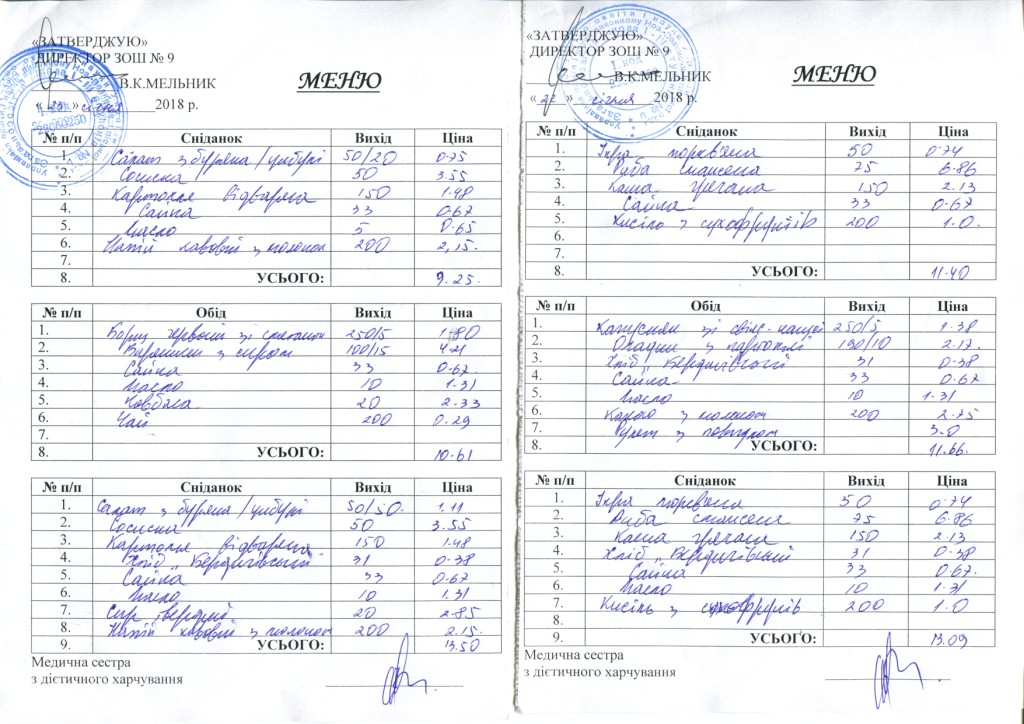 «ЗАТВЕРДЖУЮ»
ДИРЕКТОР ЗОШ № 9
В.К.МЕЛЬНИК
МЕНЮ
« » січня 2018 р.
№ п/п Сніданок Вихід Ціна
1. Салат з буряка/цибулі 50/20 0.75
2. Сосиска 50 3.55
3. Картопля відварена 150 1.48
4. Сайка 33 0.67
5. Масло 5 0.65
6. Напій кавовий з молоком 200 2,15.
7.
8. УСЬОГО: 9.25.
№ п/п Обід Вихід Ціна
1. Борщ червоний зі сметаною 250/5 1.80
2. Вареники з сиром 100/15 4.21
3. Сайка 33 0.67
4. Масло 10 1.31
5. Ковбаса 20 2.33
6. Чай 200 0.29
7.
8. УСЬОГО: 10.61
№ п/п Сніданок Вихід Ціна
1. Салат з буряка/цибулі 50/50 1.11
2. Сосиска 50 3.55
3. Картопля відварена 150 1.48
4. Хліб „Бердичівський" 31 0.38
5. Сайка 33 0.67
6. Масло 10 1.31
7. Сир твердий 20 2.85
8. Напій кавовий з молоком 200 2.15.
9. УСЬОГО: 13.50
Медична сестра
з дієтичного харчування
«ЗАТВЕРДЖУЮ»
ДИРЕКТОР ЗОШ № 9
В.К.МЕЛЬНИК
МЕНЮ
« 22 » січня 2018 р.
№ п/п Сніданок Вихід Ціна
1. Ікра 50 0.74
2. Риба смажена 75 6.86
3. Каша гречана 150 2.13
4. Сайка 33 0.67
5. Кисіль з сухофруктів 200 1.0.
6.
7.
8. УСЬОГО: 11.40
№ п/п Обід Вихід Ціна
1. Капусняк зі свіж. капусти 250/5 1.38
2. Оладки з 2.17.
3. Хліб „Бердичівський" 31 0.38
4. Сайка 33 0.67
5. Масло 10 1.31
6. Какао з молоком 200 2.75
7. з повидлом 3.0
8. УСЬОГО: 11.66.
№ п/п Сніданок Вихід Ціна
1. Ікра 50 0.74
2. Риба смажена 75 6.86
3. Каша гречана 150 2.13
4. Хліб „Бердичівський" 31 0.38
5. Сайка 33 0.67.
6. Масло 10 1.31
7. Кисіль з 200 1.0
8.
9. УСЬОГО: 13.09
Медична сестра
з дієтичного харчування